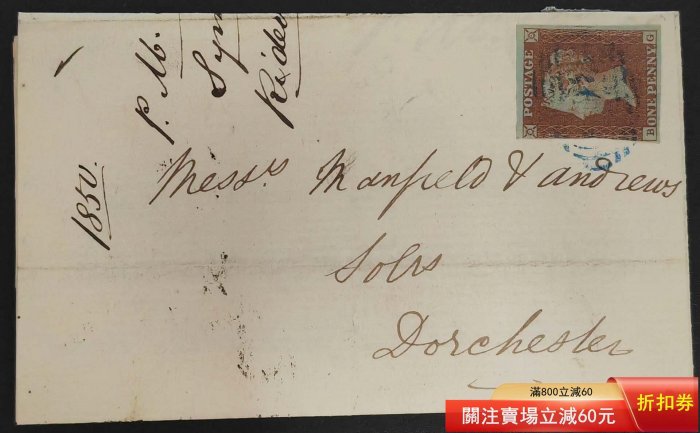 P. M.
Rider
1850.
POSTAGE
ONE PENNY
B G
Messrs Manfield & Andrews
Solrs
Dorchester
滿800立減60
關注賣場立減60元
折扣券